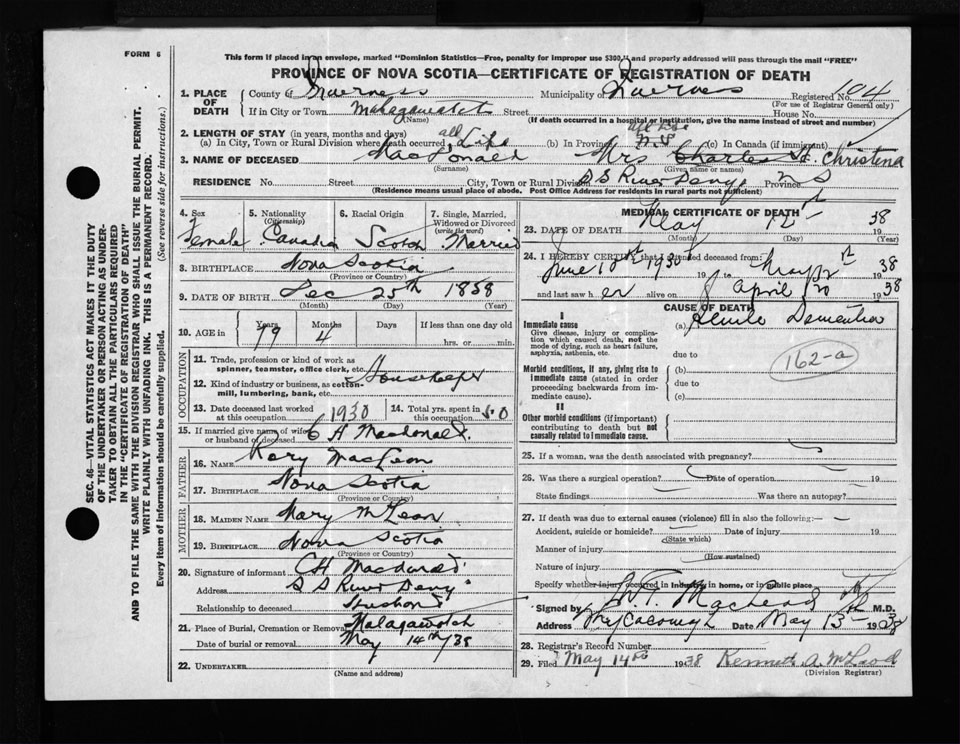 FORM 6
This form if placed in an envelope, marked "Dominion Statistics—Free, penalty for improper use $300," and properly addressed will pass through the mail "FREE"
PROVINCE OF NOVA SCOTIA—CERTIFICATE OF REGISTRATION OF DEATH
1. PLACE OF DEATH
County of Inverness Municipality of Inverness Registered No. 104
(For use of Registrar General only)
If in City or Town Malagawatch Street House No.
(Name) (If death occurred in a hospital or institution, give the name instead of street and number)
2. LENGTH OF STAY (in years, months and days)
(a) In City, Town or Rural Division where death occurred all Life (b) In Province N.S (c) In Canada (if immigrant)
3. NAME OF DECEASED MacDonald Mrs Charles H. Christena
(Surname) (Given name or names)
RESIDENCE No. Street City, Town or Rural Division S S River Denys Province N S
(Residence means usual place of abode. Post Office Address for Residents in rural parts not sufficient)
4. Sex 5. Nationality (Citizenship) 6. Racial Origin 7. Single, Married, Widowed or Divorced (write the word)
Female Canadian Scotch Married
8. BIRTHPLACE Nova Scotia
(Province or Country)
9. DATE OF BIRTH Dec 25th 1858
(Month) (Day) (Year)
10. AGE in Years Months Days If less than one day old
79 4 hrs. or min.
OCCUPATION
11. Trade, profession or kind of work as spinner, teamster, office clerk, etc. Housekeeper
12. Kind of industry or business, as cotton-mill, lumbering, bank, etc.
13. Date deceased last worked at this occupation 1930 14. Total yrs. spent in this occupation 50
15. If married give name of wife or husband of deceased C H Macdonald
FATHER
16. NAME Rory MacLean
17. BIRTHPLACE Nova Scotia
(Province or Country)
MOTHER
18. MAIDEN NAME Mary McLean
19. BIRTHPLACE Nova Scotia
(Province or Country)
20. Signature of informant C H Macdonald
Address S S River Denys
Relationship to deceased Husband
21. Place of Burial, Cremation or Removal Malagawatch
Date of burial or removal May 14th/38
22. UNDERTAKER
(Name and address)
MEDICAL CERTIFICATE OF DEATH
23. DATE OF DEATH May 12 1938
(Month) (Day) (Year)
24. I HEREBY CERTIFY that I attended deceased from:
June 1930 19 to May 1938
and last saw her alive on April 20 1938
CAUSE OF DEATH
I
Immediate cause
Give disease, injury or complication which caused death, not the mode of dying, such as heart failure, asphyxia, asthenia, etc.
(a) Senile Dementia
due to
Morbid conditions, if any, giving rise to immediate cause (stated in order proceeding backwards from immediate cause).
(b)
due to
(c)
162-a
II
Other morbid conditions (if important) contributing to death but not causally related to immediate cause.
25. If a woman, was the death associated with pregnancy?
26. Was there a surgical operation? Date of operation 19
State findings Was there an autopsy?
27. If death was due to external causes (violence) fill in also the following:—
Accident, suicide or homicide? Date of injury 19
(State which)
Manner of injury
(How sustained)
Nature of injury
Specify whether injury occurred in Industry, in home, or in public place
Signed by MacLeod M.D.
Address Whycocomagh Date May 13 1938
28. Registrar's Record Number
29. Filed May 14th 1938 Kenneth A. McLeod
(Division Registrar)
SEC. 46—VITAL STATISTICS ACT MAKES IT THE DUTY
OF THE UNDERTAKER OR PERSON ACTING AS UNDER-
TAKER TO OBTAIN ALL THE PARTICULARS REQUIRED
IN THE "CERTIFICATE OF REGISTRATION OF DEATH"
AND TO FILE THE SAME WITH THE DIVISION REGISTRAR WHO SHALL ISSUE THE BURIAL PERMIT.
WRITE PLAINLY WITH UNFADING INK. THIS IS A PERMANENT RECORD.
Every item of information should be carefully supplied. (See reverse side for instructions.)